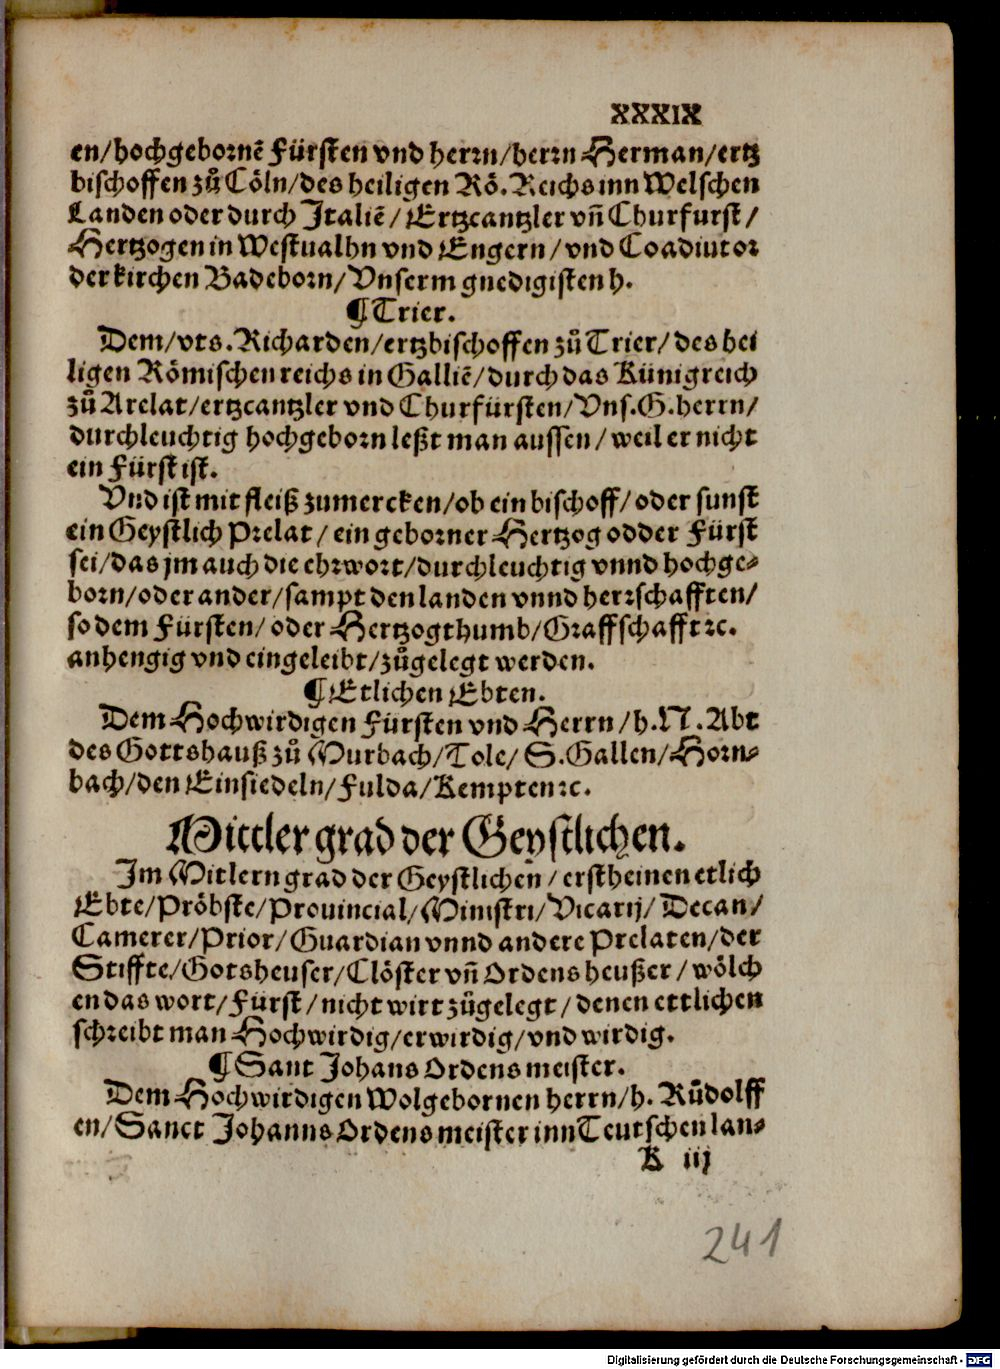 XXXIX
en/hochgebornē Fürsten vnd herrn/herrn Herman/ertz
bischoffen zů Cöln/des heiligen Rö. Reichs inn Welschen
Landen oder durch Italiē/Ertzcantzler vñ Churfurst/
Hertzogen in Westualhn vnd Engern/vnd Coadiutor
der kirchen Badeborn/Vnserm gnedigisten h.
¶Trier.
Dem/vts. Richarden/ertzbischoffen zů Trier/des hei
ligen Römischen reichs in Galliē/durch das Künigreich
zů Arelat/ertzcantzler vnd Churfürsten/Vns. G. herrn/
durchleuchtig hochgeborn leßt man aussen/weil er nicht
ein Fürst ist.
Vnd ist mit fleiß zumercken/ob ein bischoff/oder sunst
ein Geystlich Prelat/ein geborner Hertzog odder Fürst
sei/das jm auch die ehrwort/durchleuchtig vnnd hochge-
born/oder ander/sampt den landen vnnd herrschafften/
so dem Fürsten/oder Hertzogthumb/Graffschafft ꝛc.
anhengig vnd eingeleibt/zůgelegt werden.
¶Etlichen Ebten.
Dem Hochwirdigen Fürsten vnd Herrn/h. N. Abt
des Gottshauß zů Murbach/Tole/S. Gallen/Horn-
bach/den Einsiedeln/Fulda/Kempten ꝛc.
Mittler grad der Geystlichen.
Im Mitlern grad der Geystlichen/erstheinen etlich
Ebte/Pröbste/Prouincial/Ministri/Vicarij/Decan/
Camerer/Prior/Guardian vnnd andere Prelaten/der
Stiffte/Gotsheuser/Clöster vñ Ordens heußer/wölch
en das wort/Fürst/nicht wirt zůgelegt/denen ettlichen
schreibt man Hochwirdig/erwirdig/vnd wirdig.
¶Sant Johans Ordens meister.
Dem Hochwirdigen Wolgebornen herrn/h. Růdolff
en/Sanct Johanns Ordens meister inn Teutschen lan-
K iij
241
Digitalisierung gefördert durch die Deutsche Forschungsgemeinschaft - DFG